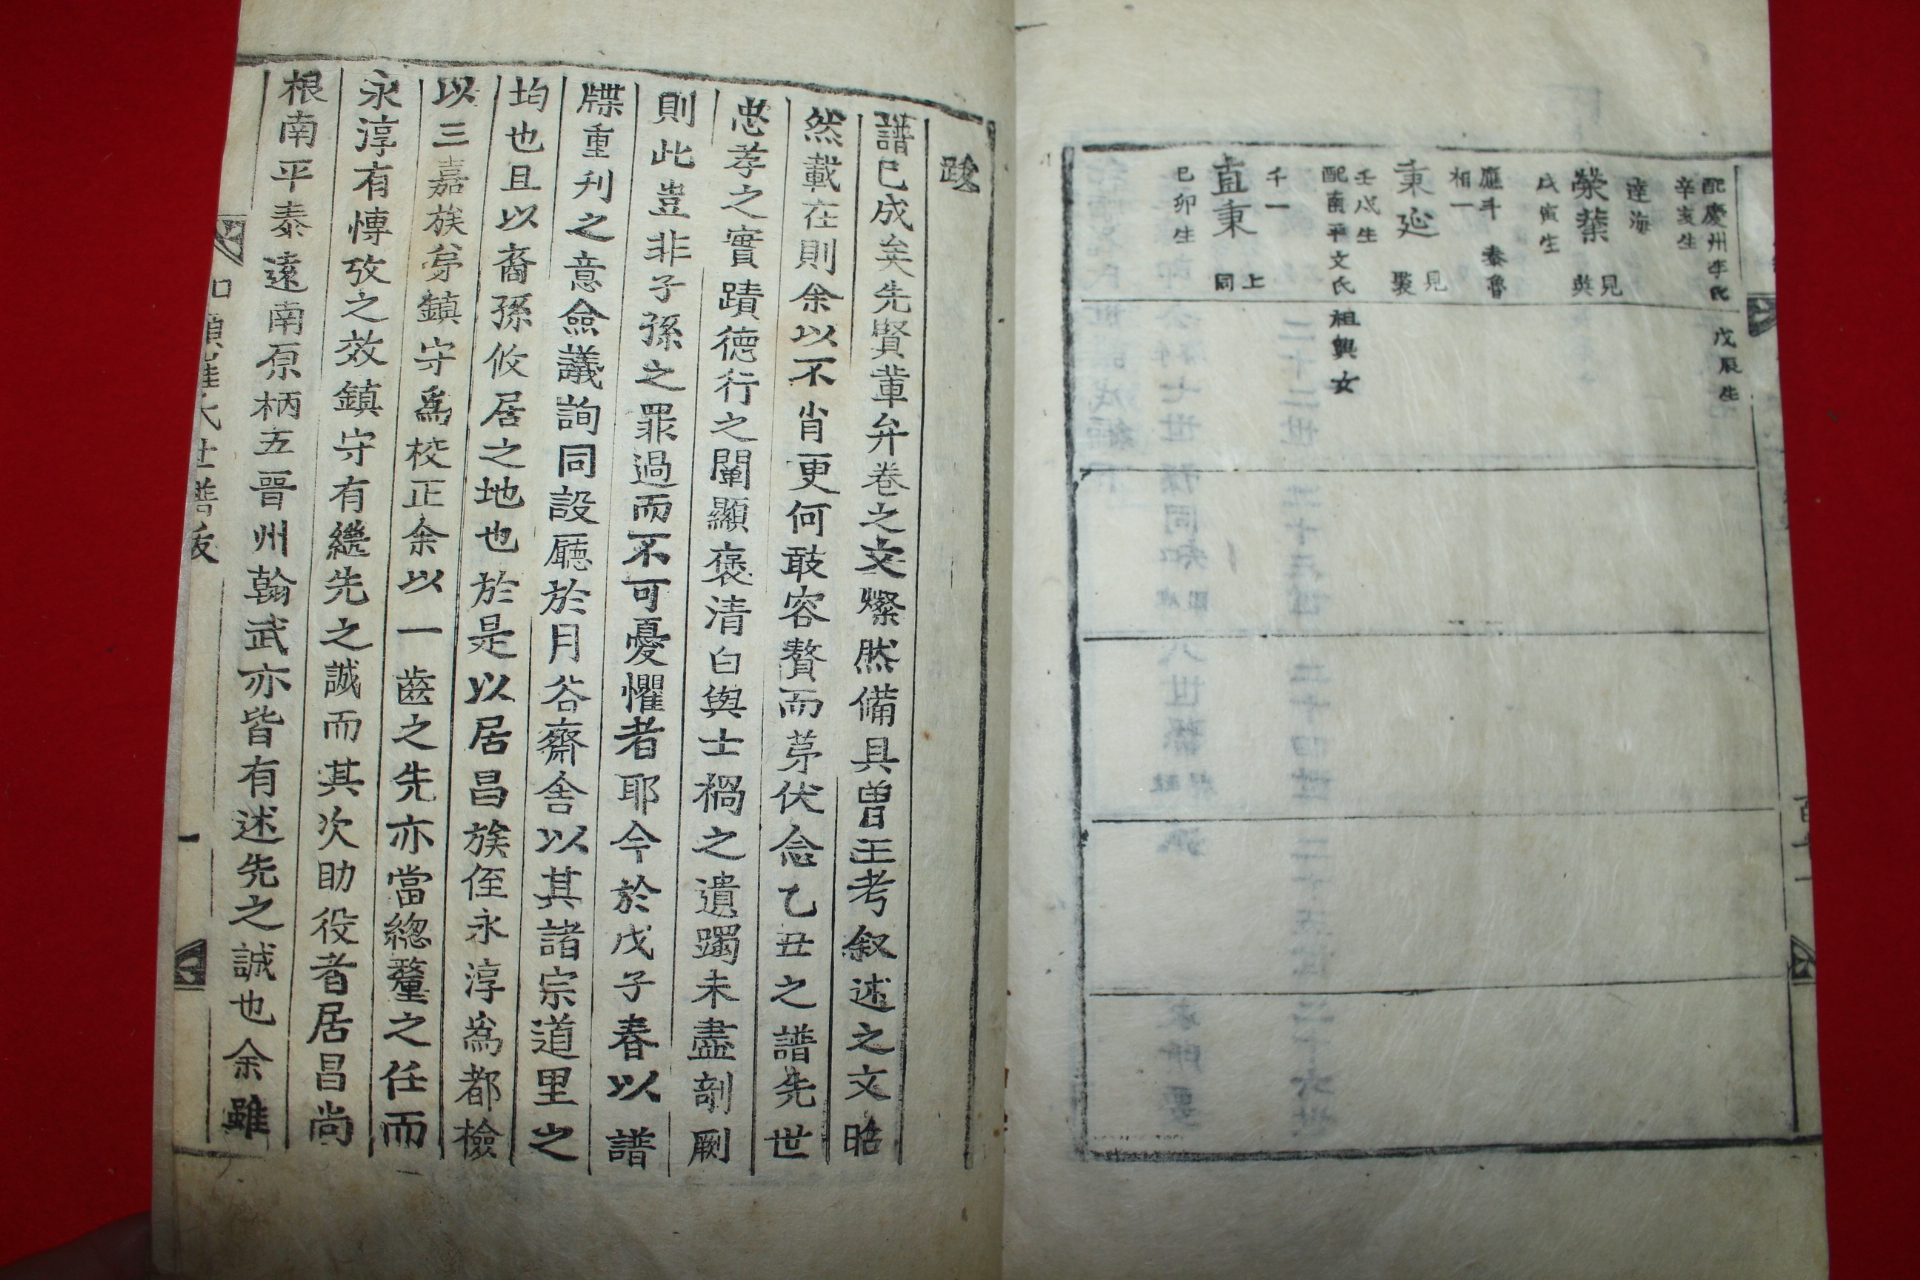 配慶州李氏 戊辰生
辛亥生
達海
榮葉 見
英
戊寅生
應斗 泰魯
相一
秉延 見
褧
壬戌生
配南平文氏祖興女
千一
直秉 上
同
己卯生
跋
譜已成矣先賢輩弁卷之文燦然備具曾王考叙述之文昭
然載在則余以不肖更何敢容贅而苐伏念乙丑之譜先世
忠孝之實蹟德行之闡顯褒清白與士禍之遺躅未盡剞劂
則此豈非子孫之罪過而不可憂懼者耶今於戊子春以譜
牒重刋之意僉議詢同設廳於月谷齋舍以其諸宗道里之
均也且以裔孫攸居之地也於是以居昌族侄永淳爲都檢
以三嘉族苐鎮守爲校正余以一齒之先亦當總釐之任而
永淳有慱攷之效鎮守有繼先之誠而其次助役者居昌尚
根南平泰遠南原柄五晋州翰武亦皆有述先之誠也余雖
氏世譜跋
一